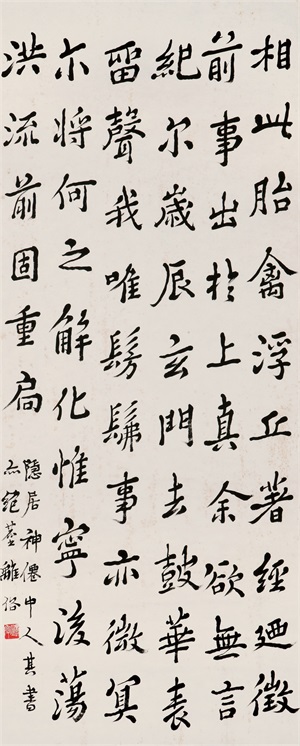 相此胎禽浮丘著經廼徵
前事出於上真余欲無言
紀尔歲辰玄門去鼓華表
留聲我唯髣髴事亦微冥
尒将何之解化惟寧後蕩
洪流前固重扃
隱居神僊中人其書
亦絕塵離俗